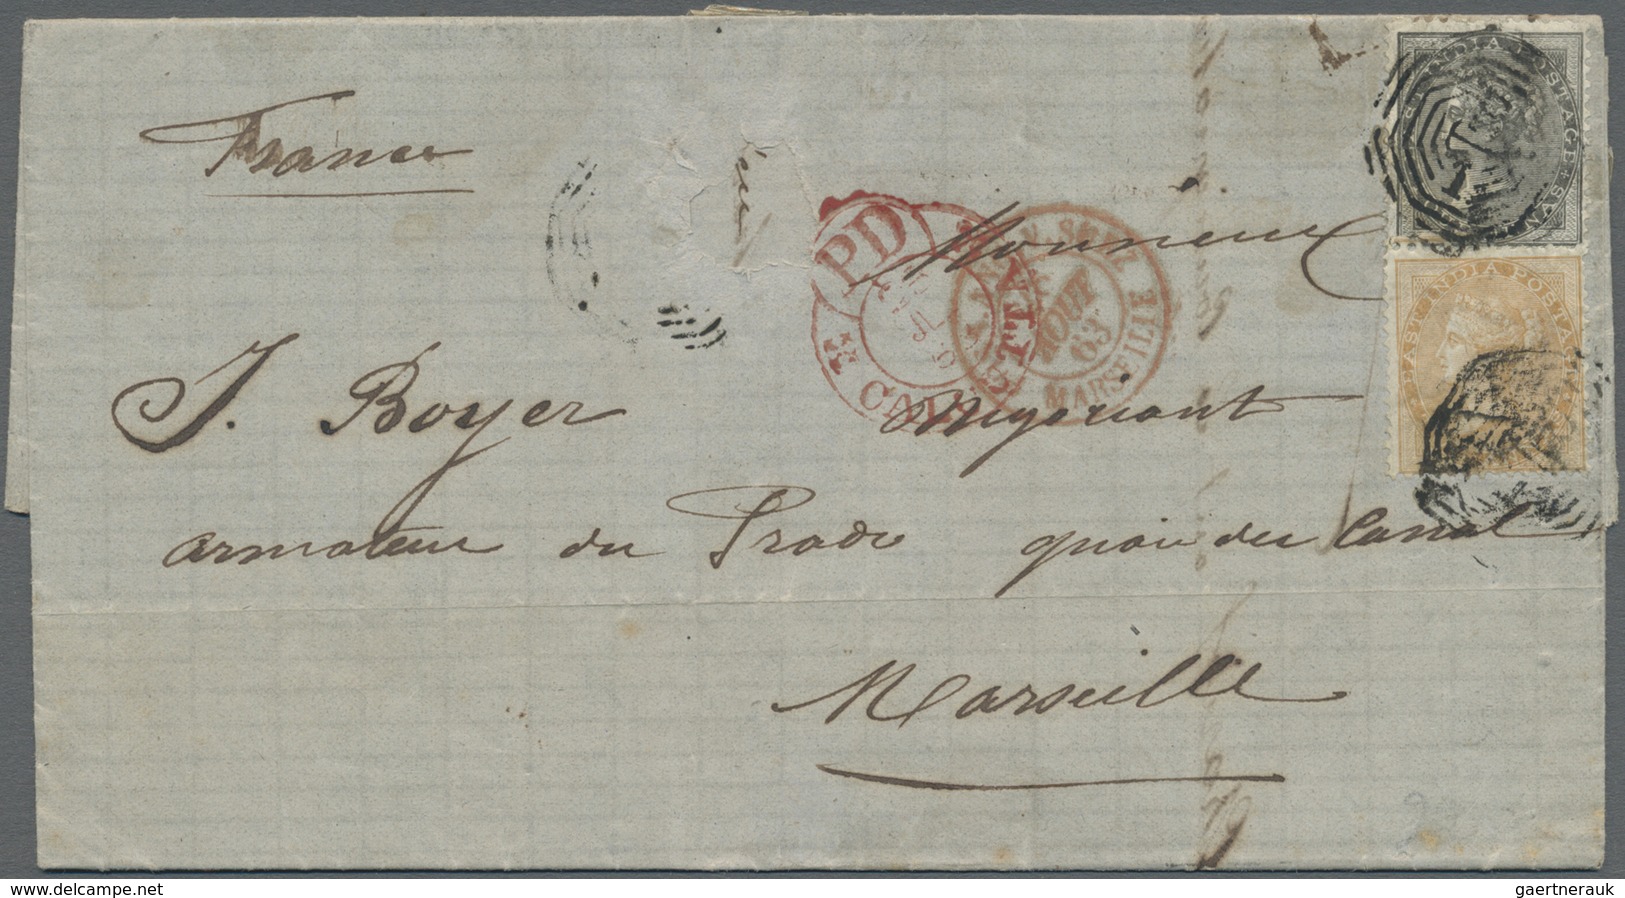 France
INDIA POSTAGE
1
PD
CALCUTTA
Monsieur
SUEZ
AOUT
63
MARSEILLE
EAST INDIA POSTAGE
J. Boyer Négociant
armateur du Prado quai du Canal
Marseille
www.delcampe.net
gaertnerauk